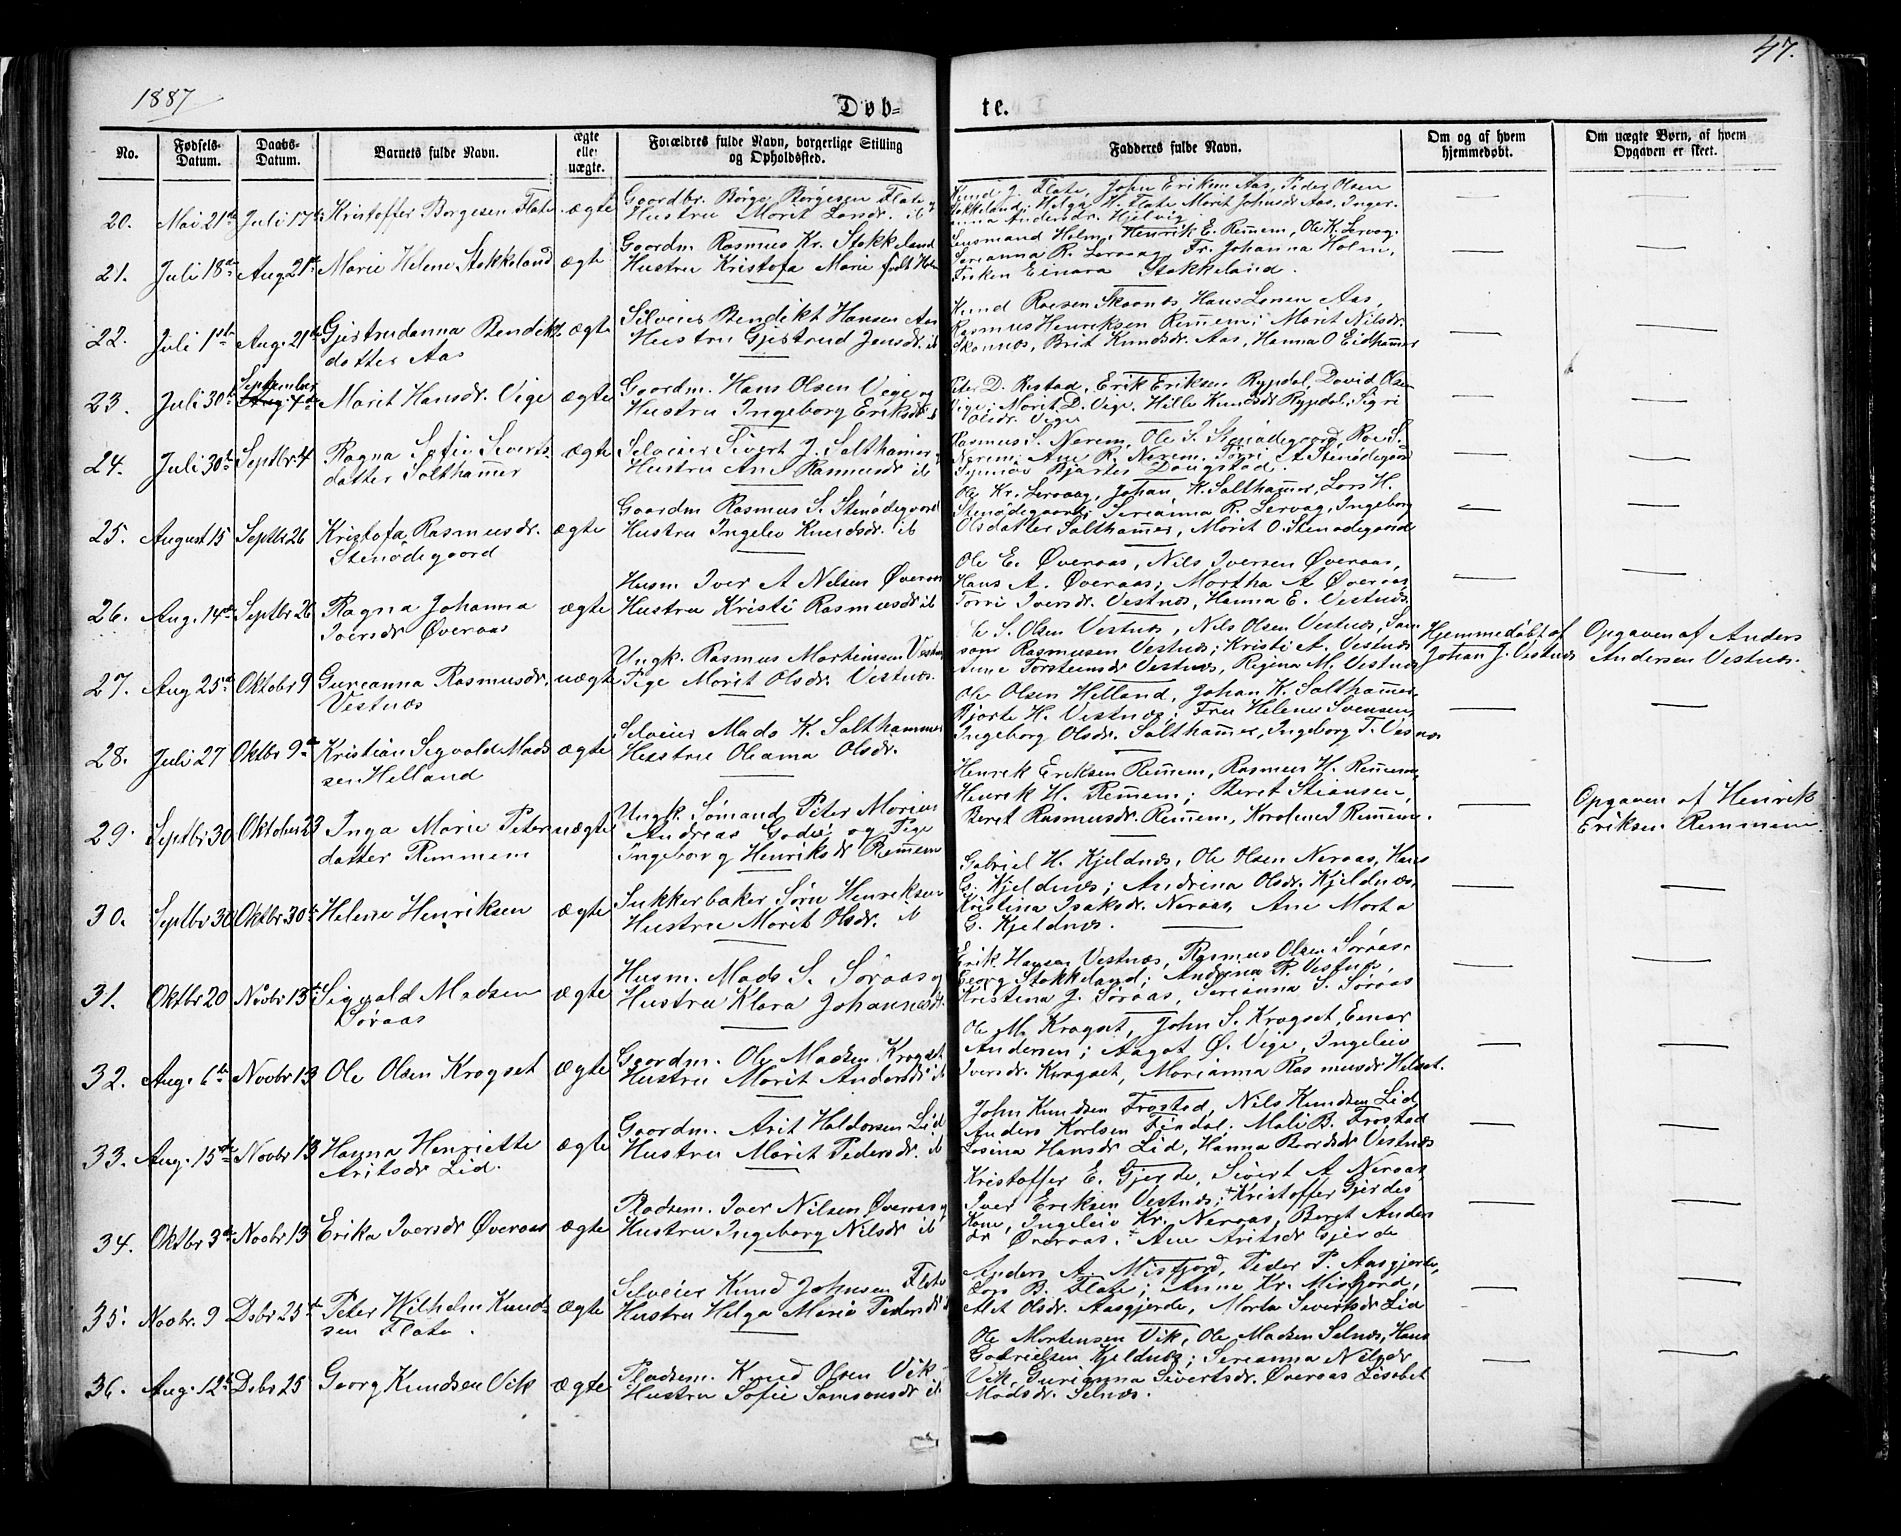 1887
47.
Døb=
te.
No.
Fødsels-
Datum.
Daabs-
Datum.
Barnets fulde Navn.
ægte
eller
uægte.
Forældres fulde Navn, borgerlige Stilling
og Opholdssted.
Fadderes fulde Navn.
Om og af hvem
hjemmedøbt.
Om uægte Børn, af hvem
Opgaven er skeet.
20. Mai 21de Juli 17 Kristoffer Børgesen Flate ægte
Gaardbr. Børge Børgesen Flate og
Hustru Marit Larsdr. ib
Knud J. Flate, John Eriksen Aas, Peder Olsen
Stokkeland; Helga H. Flate Marit Johnsdr Aas. Inger
Anna Andersdr. Hjelvig
21. Juli 18de Aug. 21de Marie Helene Stokkeland ægte
Gaardm. Rasmus Kr. Stokkeland
Hustru Kristofa Marie født Holm
Lensmand Holm, Henrik E. Remem, Ole K. Lervag.
Serianna R. Lervaag Fr. Johanna Holm,
Frøken Einara Stokkeland.
22. Juli 1ste Aug. 21de Gjertrudanna Bendikts
datter Aas ægte
Selveier Bendikt Hansen Aas
Hustru Gjertrud Jensdr. ib
Knud Roesen Skaanes, Hans Larsen Aas,
Rasmus Henriksen Remem; Marit Nilsdr.
Skaanes, Brit Knudsdr. Aas, Hanna O Eidhamer
23. Juli 30te September
4de Marit Hansdr. Vige ægte
Gaardm. Hans Olsen Vige og
Hustru Ingeborg Eriksdr ib
Peter D. Restad, Erik Eriksen Rypdal, David Olsen
Vige; Marit D. Vige, Hille Knudsdr Rypdal, Sigri
Olsdr. Vige
24. Juli 30te Septbr 4 Ragna Sofie Siverts-
datter Salthamer ægte
Selveier Sivert J. Salthamer og
Hustru Ane Rasmusdr ib
Rasmus S. Nerem, Ole S. Stenødegaard, Roe S.
Nerem; Ane R. Nerem, Torri A Stenødegaard
Synnøv Bjartes Daugstad.
25. August 15 Septbr 26 Kristofa Rasmusdr.
Stenødegaard ægte
Gaardm Rasmus S. Stenødegaard
Hustru Ingelev Knudsdr. ib
Ole Kr. Lervaag, Johan K. Salthamer, Lars H.
Stenødegaard; Serianna R. Lervag, Ingeborg
Olsdatter Salthamer, Marit O. Stenødegaard
26. Aug. 14de Septbr 26 Ragna Johanna
Iversdr Øveraas ægte
Husm Iver A Nilsen Øveraas
Hustru Kristi Rasmusdr ib
Ole E. Øveraas, Nils Iversen Øveraas,
Hans A. Øveraas; Martha A Øveraas
Torri Iversdr. Vestnes, Hanna E. Vestnes.
27. Aug 25de Oktobr 9 Gureanna Rasmusdr.
Vestnæs uægte
Ungk. Rasmus Martinusen Vestnes
Pige Marit Olsdr. Vestnæs.
S. Olsen Vestnæs, Nils Olsen Vestnæs, Sam
son Rasmusen Vestnæs; Kristi A. Vestnæs
Anne Torsteinsdr Vestnæs, Regina M. Vestnæs
Hjemmedøbt af
Johan J. Vestnæs
Opgaven af Anders
Andersen Vestnæs.
28. Juli 27 Oktbr 9de Kristian Sigvald Mads
sen Helland ægte
Selveier Mads K. Salthammer
Hustru Oleama Olsdr.
Ole Olsen Helland, Johan K. Salthamer,
Bjarte H. Vestnæs; Fru Helene Svensen,
Ingeborg Olsdr. Salthamer, Ingeborg T. Vestnæs
29. Septbr 30 Oktober 23 Inga Marie Peter
datter Remmem uægte
Ungk. Sømand Peter Marius
Andreas Godø og Pige
Ingeborg Henriksdr Remem
Henrik Eriksen Remem, Rasmus H. Remem,
Henrik H. Remem; Beret Stiansen,
Beret Rasmusdr. Remem, Karoline I Remem.
Opgaven af Henrik
Eriksen Remmem.
30. Septbr 30 Oktbr 30te Helene Henriksen ægte
Sukkerbaker Sørn Henriksen
Hustru Marit Olsdr. ib
Gabriel H. Kjeldnæs, Ole Olsen Neraas, Hans
G. Kjeldnæs; Andrina Olsdr. Kjeldnæs,
Kristina Isaksdr. Neraas, Ane Marta
G. Kjeldnæs.
31. Oktbr 20 Novbr 13de Sigvald Madsen
Søraas ægte
Husm. Mads S. Søraas og
Hustru Klara Johannesdr
Erik Hansen Vestnæs, Rasmus Olsen Søraas,
Georg Stokkeland; Andrina R. Vestnæs,
Kristina J. Søraas, Serianna S. Søraas
32. Aug. 6te Novbr 13 Ole Olsen Kragset ægte
Gaardm. Ole Madsen Kragset
Hustru Marit Andersdr ib
Ole M. Kragset, John S. Kragset, Einar
Andersen; Aagot Ø. Vige, Ingelev
Iversdr. Kragset, Marianna Rasmusdr Helset.
33. Aug. 15de Novbr 13 Hanna Henriette
Aritsdr Lid. ægte
Gaardm. Arit Haldorsen Lid
Hustru Marit Pedersdr. ib
John Knudsen Frostad, Nils Knudsen Lid
Anders Karlsen Findal. Mali B. Frostad
Lasina Hansdr Lid, Hanna Bardsdr Vestnæs
34. Oktbr 3de Novbr 13 Erika Iversdr Øveraas ægte
Pladsem. Iver Nilsen Øveraas og
Hustru Ingeborg Nilsdr ib
Kristoffer E. Gjerde, Sivert A Neraas,
Iver Eriksen Vestnæs; Kristoffer Gjerdes
Kone, Ingelev Kr. Neraas, Beret Anders
dr Øveraas. Ane Aritsdr Gjerde
35. Novbr. 9 Dsbr 25de Peter Wilhelm Knud-
sen Flate. ægte
Selveier Knud Johnsen Flate
Hustru Helga Marie Pedersdr ib
Anders A. Misfjord, Peder P. Aasgjerde,
Lars B. Flate; Anne Kr. Misfjord,
Alet Olsdr. Aasgjerde, Marta Sivertsdr Lid
36. Aug. 12te Dsbr 25 Georg Knudsen Vik ægte
Pladsem. Knud Olsen Vik.
Hustru Sofie Samsonsdr ib
Ole Mortensen Vik, Ole Madsen Selnæs, Hans
Gabrielsen Kjeldnæs; Serianna Nilsdr
Vik, Gurianna Sivertsdr. Øveraas Lisabet
Madsdr. Selnæs.